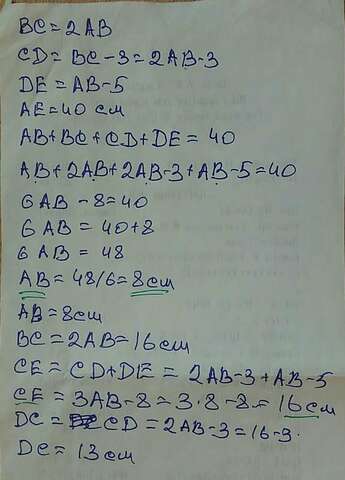 BC=2AB
CD=BC-3=2AB-3
DE=AB-5
AE=40 см
AB+BC+CD+DE=40
AB+2AB+2AB-3+AB-5=40
6AB-8=40
6AB=40+8
6AB=48
AB=48/6=8см
AB=8см
BC=2AB=16см
CE=CD+DE=2AB-3+AB-5
CE=3AB-8=3·8-8=16см
DC=CD=2AB-3=16-3
DC=13см